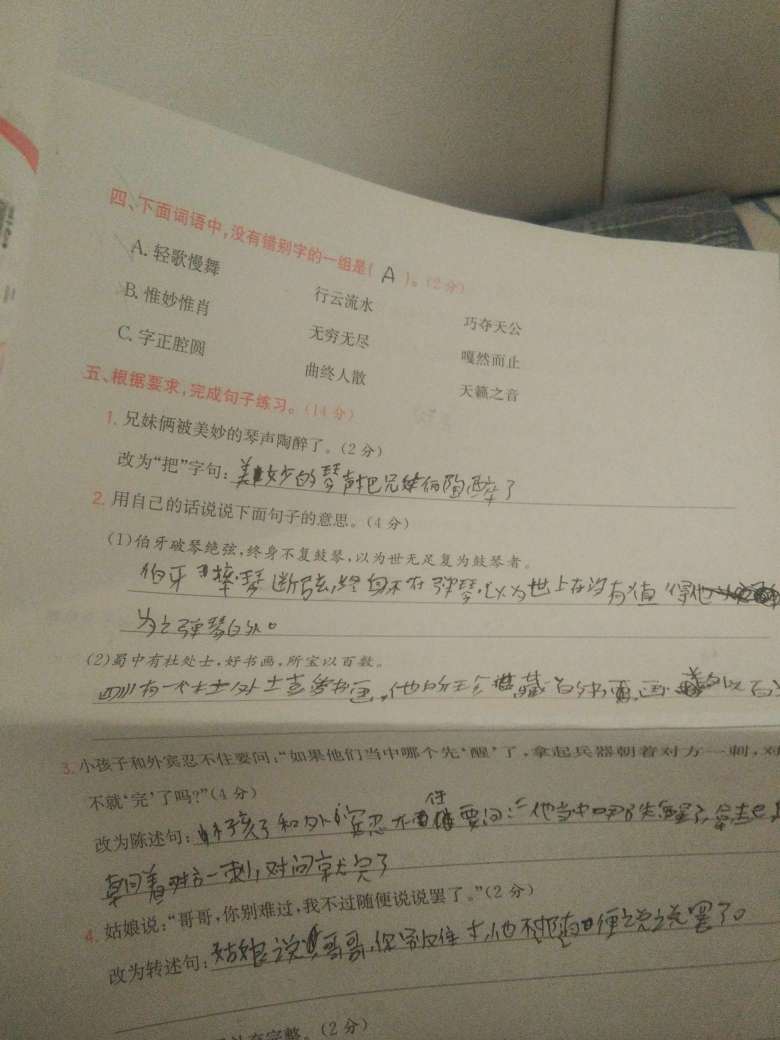 四、下面词语中,没有错别字的一组是( A )。(2分)
A. 轻歌慢舞 行云流水 巧夺天公
B. 惟妙惟肖 无穷无尽 嘎然而止
C. 字正腔圆 曲终人散 天籁之音
五、根据要求,完成句子练习。(14分)
1. 兄妹俩被美妙的琴声陶醉了。(2分)
改为“把”字句: 美妙的琴声把兄妹俩陶醉了
2. 用自己的话说说下面句子的意思。(4分)
(1)伯牙破琴绝弦,终身不复鼓琴,以为世无足复为鼓琴者。
伯牙摔琴断弦,终身不在弹琴,以为世上在没有值得他
为之弹琴的人。
(2)蜀中有杜处士,好书画,所宝以百数。
四川有一个
3. 小孩子和外宾忍不住要问:“如果他们当中哪个先‘醒’了,拿起兵器朝着对方一刺,对
不就‘完’了吗?”(4分)
改为陈述句: 小孩子和外宾忍不住要问:他当中哪个先醒了,拿起
朝着对方一刺,对
4. 姑娘说:“哥哥,你别难过,我不过随便说说罢了。”(2分)
改为转述句: 姑娘说哥哥,你别 他不过随便说说罢了。
(2分)